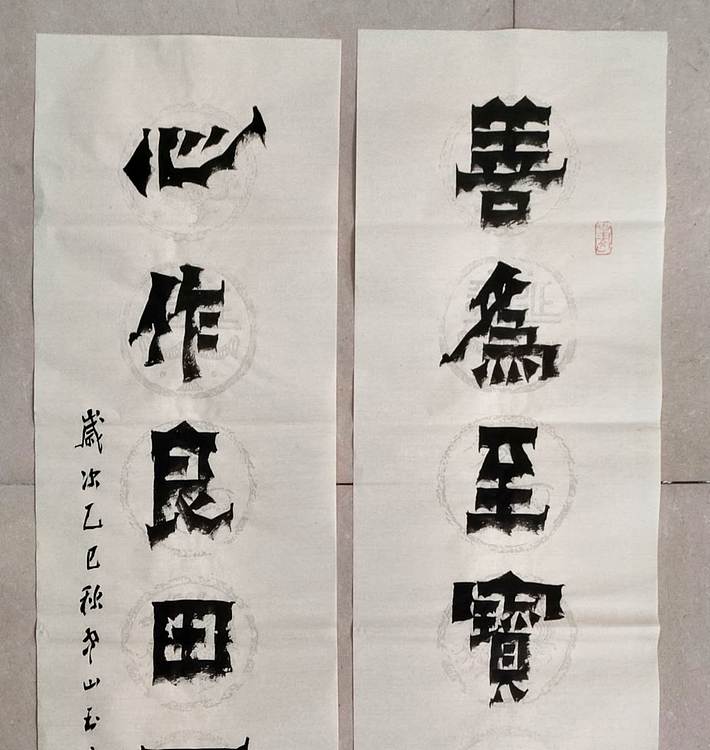 善為至寶
心作良田
歲次乙巳秋